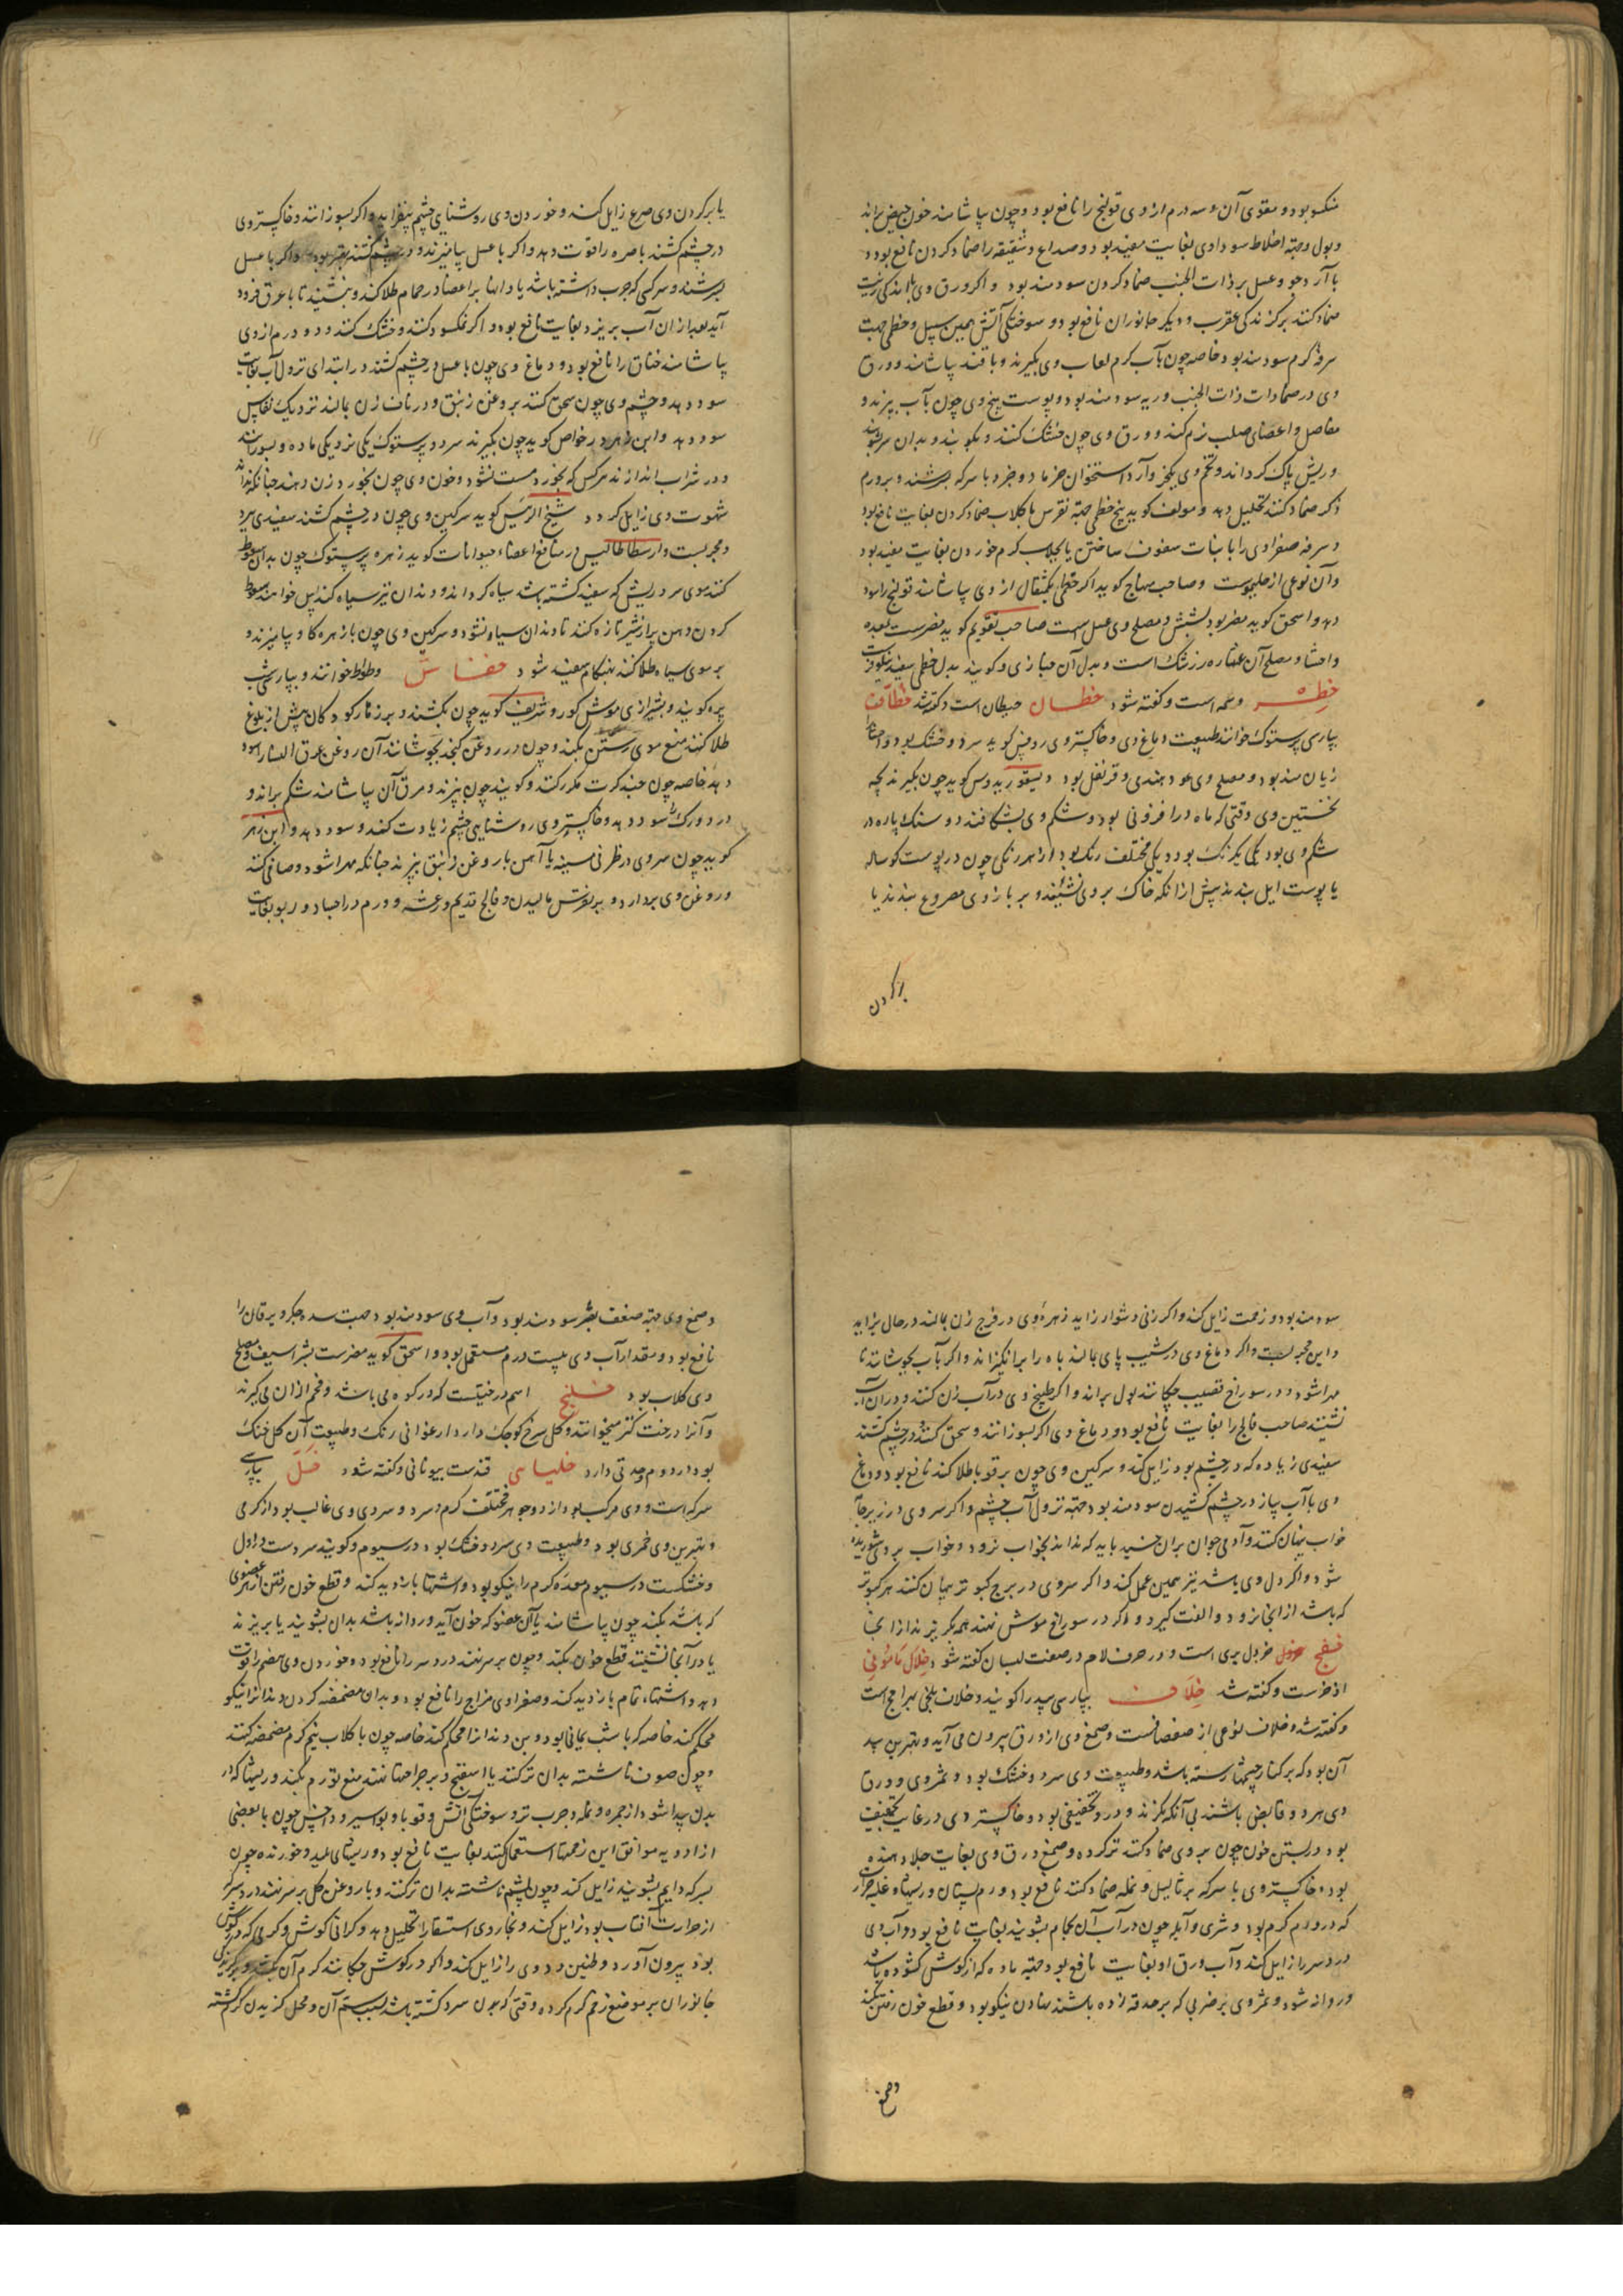 منکسو بود و مقوی آن و سه درم از وی قولنج را نافع بود و چون بیاشامند خون حیض براند
و بول و جهة اخلاط سوداوی بغایت مفید بود و صداع و شقیقه را ضماد کردن نافع بود و
با آرد جو و عسل بر ذات الجنب ضماد کردن سودمند بود و اگر ورق وی با اندکی زیت
ضماد کنند بر گزندگی عقرب و دیگر جانوران نافع بود و سوختگی آتش همین سبیل و خطمی جهت
سرفه گرم سودمند بود خاصه چون بآب گرم لعاب وی بگیرند و با قند بیاشامند و ورق
وی در ضمادات ذات الجنب و ریه سودمند بود و پوست بیخ وی چون بآب بپزند و
مفاصل و اعضای صلب نرم کند و ورق وی چون خشک کنند و بکوبند و بدان سر بشویند
و ریش پاک گرداند و تخم وی یکجزو آرد استخوان خرما دو جزو با سرکه بسرشند و بر ورم
ذکر ضماد کنند تحلیل دهد و مولف کوید بیخ خطمی جهة نقرس با کلاب ضماد کردن بغایت نافع بود
و سرفه صفراوی را با نبات سفوف ساختن یا بجلاب گرم خوردن بغایت مفید بود
و آن نوعی از ملوخیاست و صاحب منهاج کوید اگر خطمی یکمثقال از وی بیاشامند قولنج را سود
دهد و اسحق کوید مضر بود بشش و مصلح وی عسل است صاحب تقویم کوید مضرست بمعده
و احشا و مصلح آن عصاره زرشک است و بدل آن خبازی و کویند بدل خطمی سفید نیلوفرست
خطره وسمه است و گفته شود خطبان حبطان است و گفته شد خطاف
بپارسی پرستوک خوانند طبیعت دماغ وی و خاکستر وی روفس کوید سرد و خشک بود و احشا را
زیان مند بود و مصلح وی عود هندی و قرنفل بود دیسقوریدوس کوید چون بگیرند بچه
نخستین وی وقتی که ماه در افزونی بود و شکم وی بشکافند دو سنک پاره در
شکم وی بود یکی یکرنگ بود و یکی مختلف رنگ بود از هر رنگی چون در پوست کوساله
یا پوست ایل بندند پیش از آنکه خاک بر وی نشیند و بر بازوی مصروع بندند یا
بر کردن
یا بر کردن وی صرع زایل کند و خوردن وی روشنایی چشم بیفزاید و اگر بسوزانند و خاکستر وی
در چشم کشند باصره را قوت دهد و اگر با عسل بیامیزند و در چشم کشند بهتر بود و اگر با عسل
بسرشند و هر کس که جرب داشته باشد یا داءها بر اعضا در حمام طلا کند و بنشیند تا با عرق فرود
آید بعد از آن آب بریزد بغایت نافع بود و اگر نمکسود کنند و خشک کنند و دو درم از وی
بیاشامند خناق را نافع بود و دماغ وی چون با عسل در چشم کشند در ابتدای نزول آب بغایت
سود دهد و چشم وی چون سحق کنند بروغن زنبق و در ناف زن بالند نزدیک نفاس
سود دهد و ابن زهر در خواص کوید چون بگیرند سر دو پرستوک یکی نر و یکی ماده و بسوزانند
و در شراب اندازند هر کس که بخورد مست نشود و خون وی چون بخورد زن دهند چنانکه نداند
شهوت وی زایل کردد شیخ الرئیس کوید سرکین وی چون در چشم کشند سفیدی ببرد
و مجربست و ارسطاطالیس در منافع اعضاء حیوانات کوید زهره پرستوک چون بدان سعوط
کنند موی سر و ریش که سفید گشته باشد سیاه گرداند و دندان نیز سیاه کند پس خواهند سعوط
کردن دهن پر از شیر تازه کنند تا دندان سیاه نشود و سرکین وی چون با زهره گاو بیامیزند و
بر موی سیاه طلا کنند بی هنگام سفید شود خفاش وطواط خوانند و بپارسی شب
پره کویند و بشیرازی موش کور و شریف کوید چون بکشند و بر زهار کودکان پیش از بلوغ
طلا کنند منع موی رستن بکند و چون در روغن کنجد بجوشانند آن روغن عرق النسا را سود
دهد خاصه چون چند کرت مکرر کنند و کویند چون بپزند و مرق آن بیاشامند شکم براند و
درد ورک را سود دهد و خاکستر وی روشنایی چشم زیادت کند و سود دهد و ابن زهر
کوید چون سر وی در ظرفی مسینه یا آهن با روغن زنبق بپزند چنانکه مهرا شود و صافی کنند
و روغن وی بردارد و بر نقرس مالیدن و فالج قدیم و رعشه و ورم در اجساد و ربو بغایت
سودمند بود و زحمت زایل کند و اگر زنی دشوار زاید زهره وی در فرج زن بالند در حال بزاید
و این مجربست و اگر دماغ وی در شیب پای بالند باه را برانگیزاند و اگر بآب بجوشانند تا
مهرا شود و در سوراخ قضیب چکانند بول براند و اگر طبیخ وی در آب زن کنند و در آن آب
نشیند صاحب فالج را بغایت نافع بود و دماغ وی اگر بسوزانند و سحق کنند و در چشم کشند
سفیدی زیاده که در چشم بود زایل کند و سرکین وی چون بر قوبا طلا کنند نافع بود و دماغ
وی با آب پیاز در چشم کشیدن سودمند بود جهة نزول آب چشم و اگر سر وی در زیر جامه
خواب پنهان کنند و آدمی جوان بر آن خسبد باید که نداند بخواب نرود و خواب بر وی شوریده
شود و اگر دل وی باشد نیز همین عمل کند و اگر سر وی در برج کبوتر پنهان کنند هر کبوتر
که باشد از آنجا نرود و الفت گیرد و اگر در سوراخ موش نهند همه بگریزند از آنجا
خفج خردل بری است و در حرف لام در صفت لبسان گفته شود خلال مامونی
اذخرست و گفته شد خلاف بپارسی بید را کویند و خلاف بلخی بهرامج است
و گفته شد و خلاف نوعی از صفصافست و صمغ وی از ورق بیرون می آید و بهترین بید
آن بود که بر کنار چشمها رسته باشد و طبیعت وی سرد و خشک بود و ثمر وی و ورق
وی هر دو قابض باشند بی آنکه بگزند و در وی تجفیفی بود و خاکستر وی در غایت تجفیف
بود و در بستن خون چون بر وی ضماد کنند تر کرده و صمغ ورق وی بغایت جلا دهنده
بود و خاکستر وی با سرکه بر ثالیل و نمله ضماد کنند نافع بود و ورم پستان و ریشها و غلبه حرارت
که در ورم گرم بود و شری و آبله چون در آب آن بحمام بشویند بغایت نافع بود و آب وی
درد سر را زایل کند و آب ورق او بغایت نافع بود جهة ماده که از گوش گشوده باشد
و روانه شود و ثمر وی بر ضربی که بر حدقه زده باشند نهادن نیکو بود و قطع خون رفتن بکند
و صمغ
و صمغ وی جهة ضعف بصر سودمند بود و آب وی سودمند بود جهت سده جگر و یرقان را
نافع بود و مقدار آب وی بیست درم مستعمل بود و اسحق کوید مضرست بشراسیف و مصلح
وی کلاب بود خلنج اسم درختیست که در کوه می باشد و فحم از آن می گیرند
و آنرا درخت کز میخوانند و گل سرخ کوچک دارد ارغوانی رنگ و طبیعت آن گل خنک
بود و در دوم و حدتی دارد خلیاسی قندست بیونانی و گفته شود خل بپارسی
سرکه است و وی مرکب بود از دو جوهر مختلف گرم و سرد و سردی وی غالب بود از گرمی
و بهترین وی خمری بود و طبیعت وی سرد و خشک بود در سیوم و کویند سردست در اول
و خشکست در سیوم معده گرم را نیکو بود و اشتها بازدید کند و قطع خون رفتن از هر عضوی
که باشد بکند چون بیاشامند یا آن عضو که خون آید و روانه باشد بدان بشویند یا بریزند
یا در آنجا نشینند قطع خون بکند و چون بر سر نهند درد سر را نافع بود و خوردن وی هضم را قوت
دهد و اشتهاء تمام بازدید کند و صفراوی مزاج را نافع بود و بدان مضمضه کردن دندانرا نیکو
محکم کند خاصه که با شب یمانی بود و بن دندانرا محکم کند خاصه چون با کلاب نیم گرم مضمضه کنند
و چون صوف ناشسته بدان تر کنند یا اسفنج و بر جراحتها نهند منع تورم بکند و ریشها که در
بدن پیدا شود از جمره و نمله و جرب تر و سوختگی آتش و قوبا و بواسیر و داخس چون با بعضی
از ادویه موافق این زحمتها استعمال کنند بغایت نافع بود و ریشهای پلید و خورنده چون
بسرکه دایم بشویند زایل کند و چون پشم ناشسته بدان تر کنند و با روغن گل بر سر نهند درد سر
از حرارت آفتاب بود زایل کند و بخار وی استسقا را تحلیل دهد و گرانی گوش و کرمی که در گوش
بود بیرون آورد و طنین و دوی را زایل کند و اگر در گوش چکانند کرم آن بکشد و بر گزیدگی
جانوران بر موضع زخم گرم کرده وقتی که بدن سرد گشته باشد بسبب سم آن و محل گزیدن گرم گشته